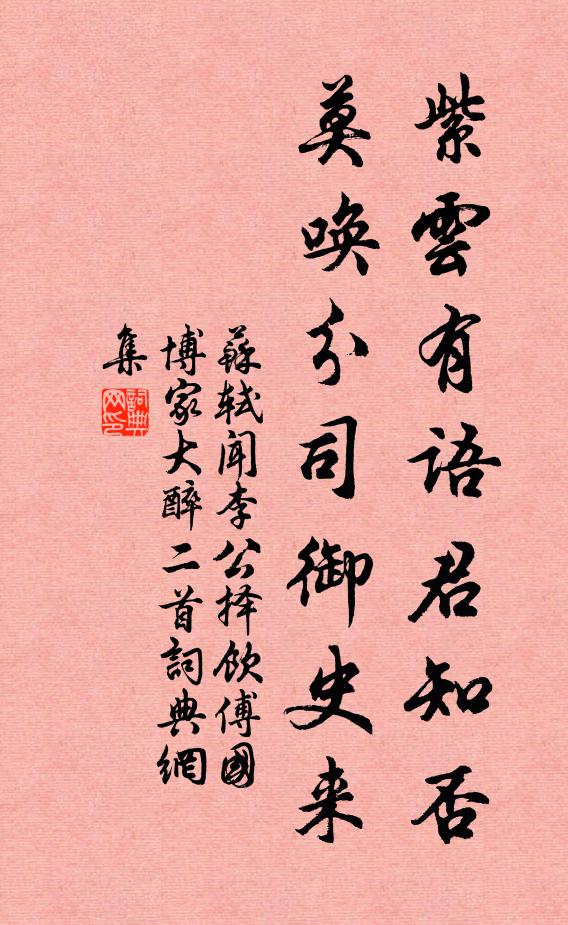 紫雲有語君知否
莫唤分司御史来
蘇軾聞李公择飲傅國
博家大醉二首詞典網
集
詞典
网印